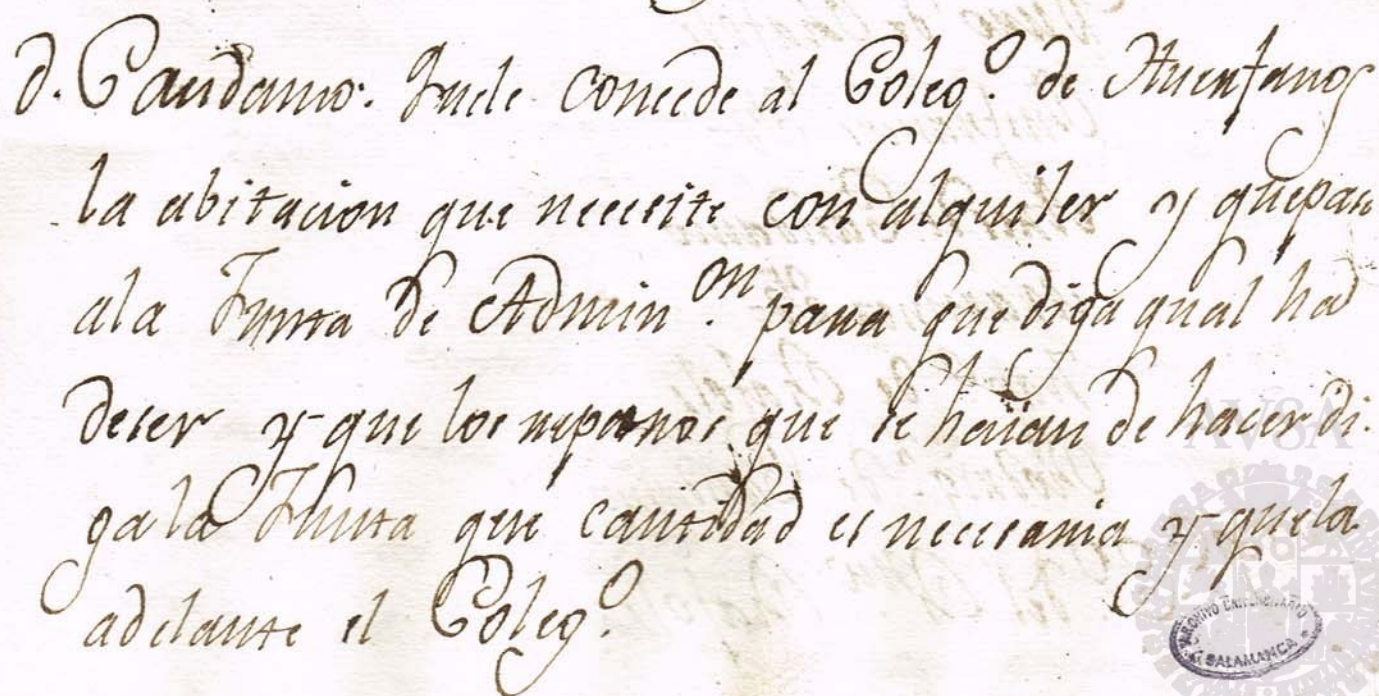 d. Candamo. Quele concede al Coleg.º de Huerfanos
la abitacion que necesite con alquiler y quepase
ala Junta de Admin.on para que diga qual ha d
deser y que los reparos que se haian de hacer di-
gala Junta que cantidad es necesaria y que la
adelante el Coleg.º
AUSA
ARCHIVO UNIVERSITARIO
SALAMANCA